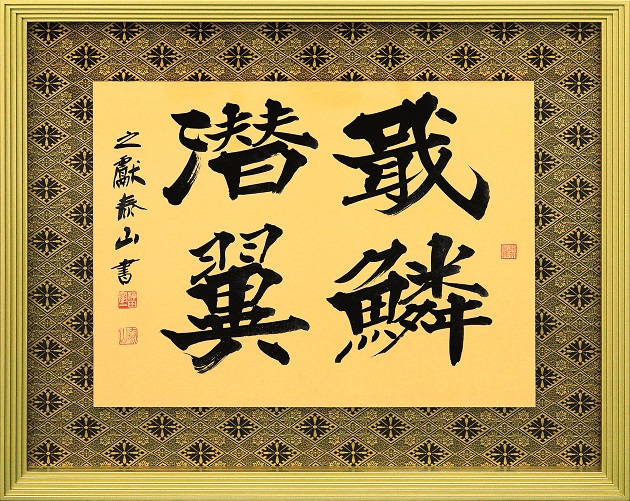 戢鱗
潜翼
之獻泰山書